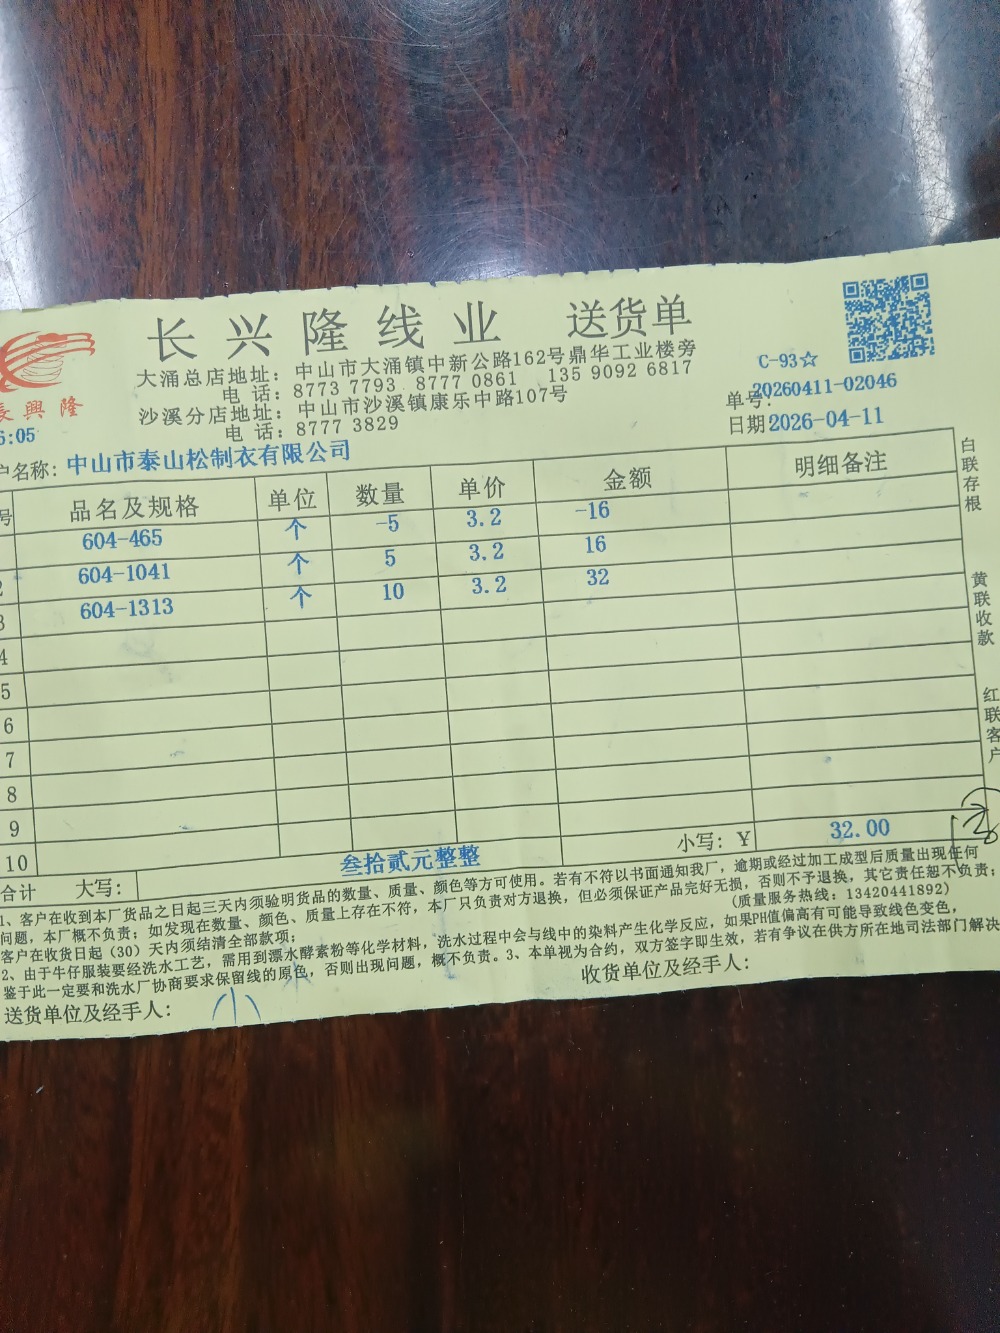 长兴隆线业 送货单
C-93☆
大涌总店地址：中山市大涌镇中新公路162号鼎华工业楼旁
电 话：8773 7793 8777 0861 135 9092 6817
沙溪分店地址：中山市沙溪镇康乐中路107号
电 话：8777 3829
長興隆
5:05
单号：20260411-02046
日期 2026-04-11
户名称：中山市泰山松制衣有限公司
号 品名及规格 单位 数量 单价 金额 明细备注
604-465 个 -5 3.2 -16
2 604-1041 个 5 3.2 16
3 604-1313 个 10 3.2 32
4
5
6
7
8
9
10
合计 大写： 叁拾贰元整整 小写：￥ 32.00
白联存根
黄联收款
红联客户
1、客户在收到本厂货品之日起三天内须验明货品的数量、质量、颜色等方可使用。若有不符以书面通知我厂，逾期或经过加工成型后质量出现任何
问题，本厂概不负责；如发现在数量、颜色、质量上存在不符，本厂只负责对方退换，但必须保证产品完好无损，否则不予退换，其它责任恕不负责；
客户在收货日起（30）天内须结清全部款项；
(质量服务热线：13420441892)
2、由于牛仔服装要经洗水工艺，需用到漂水酵素粉等化学材料，洗水过程中会与线中的染料产生化学反应，如果PH值偏高有可能导致线色变色，
鉴于此一定要和洗水厂协商要求保留线的原色，否则出现问题，概不负责。3、本单视为合约，双方签字即生效，若有争议在供方所在地司法部门解决
送货单位及经手人：
收货单位及经手人：